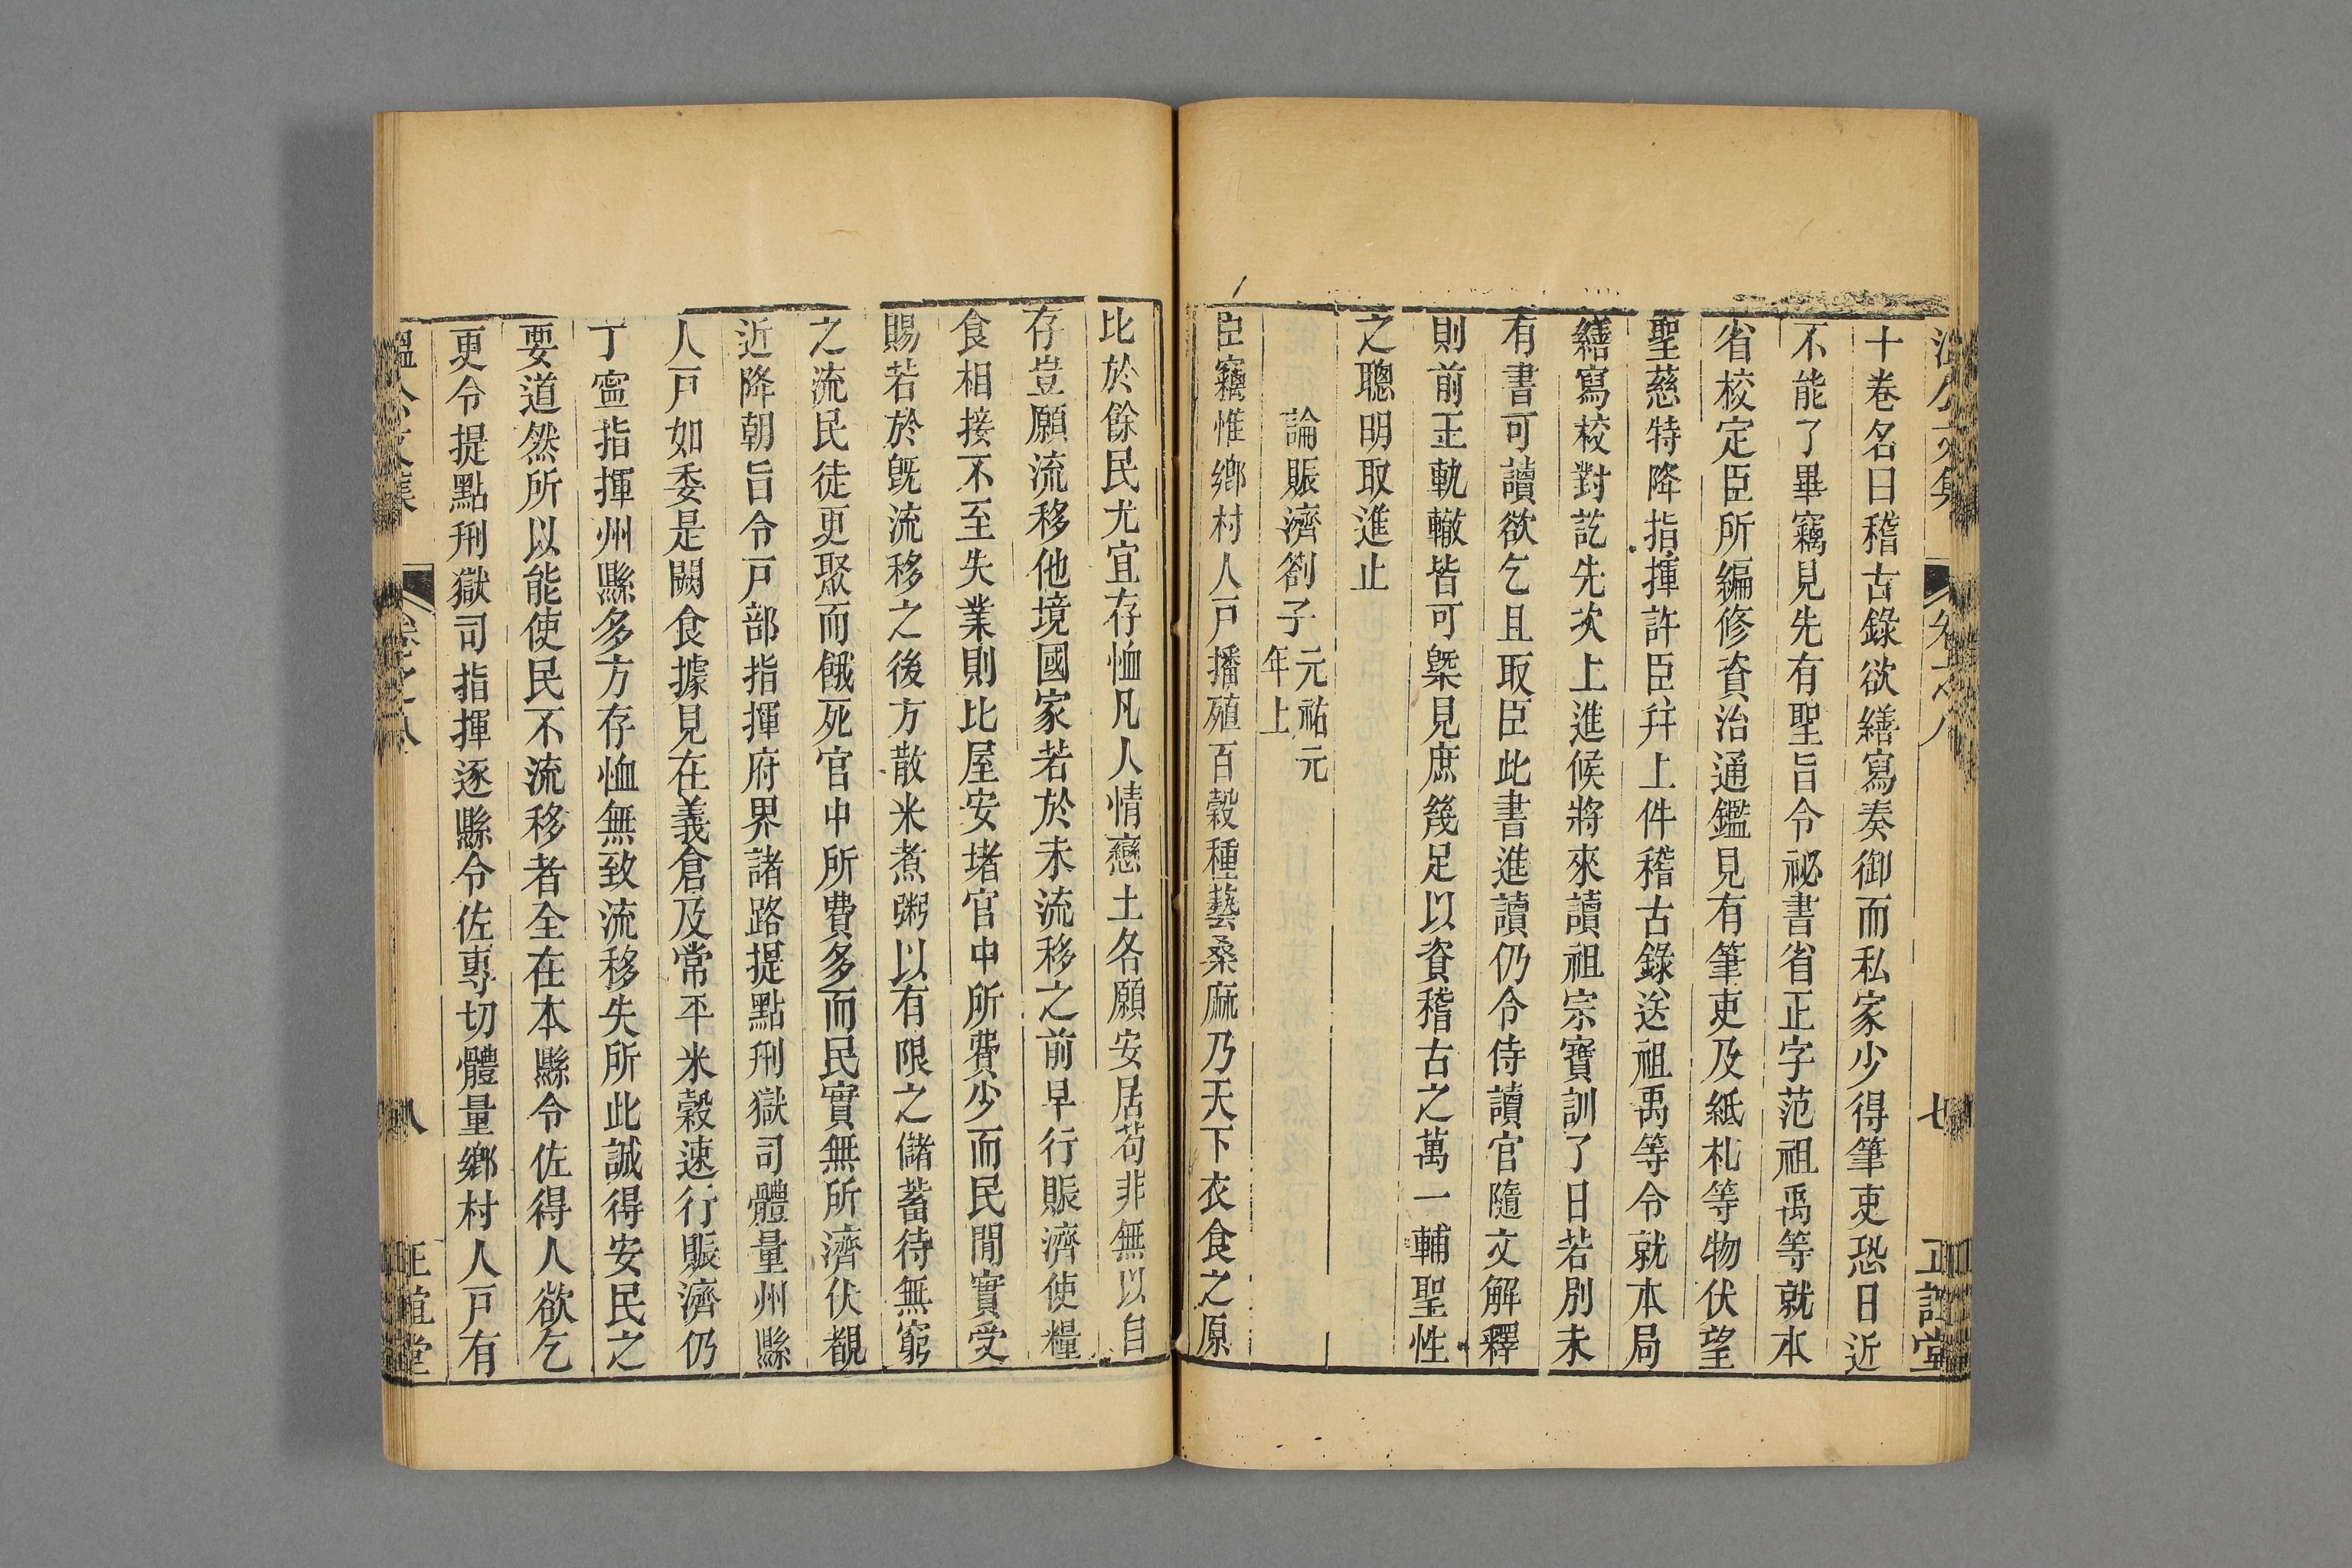 十卷名曰稽古錄欲繕寫奏御而私家少得筆吏恐日近
不能了畢竊見先有聖旨令祕書省正字范祖禹等就本
省校定臣所編修資治通鑑見有筆吏及紙札等物伏望
聖慈特降指揮許臣幷上件稽古錄送祖禹等令就本局
繕寫校對訖先次上進候將來讀祖宗寶訓了日若別未
有書可讀欲乞且取臣此書進讀仍令侍讀官隨文解釋
則前正軌轍皆可槩見庶幾足以資稽古之萬一輔聖性
之聰明取進止
論賑濟劄子元祐元年上
臣竊惟鄉村人戶播殖百穀種藝桑麻乃天下衣食之原
比於餘民尤宜存恤凡人情戀土各願安居苟非無以自
存豈願流移他境國家若於未流移之前早行賑濟使糧
食相接不至失業則比屋安堵官中所費少而民間實受
賜若於旣流移之後方散米煮粥以有限之儲蓄待無窮
之流民徒更聚而餓死官中所費多而民實無所濟伏覩
近降朝旨令戶部指揮府界諸路提點刑獄司體量州縣
人戶如委是闕食據見在義倉及常平米穀速行賑濟仍
丁寧指揮州縣多方存恤無致流移失所此誠得安民之
要道然所以能使民不流移者全在本縣令佐得人欲乞
更令提點刑獄司指揮逐縣令佐專切體量鄉村人戶有
溫公文集
卷之八
八
正誼堂